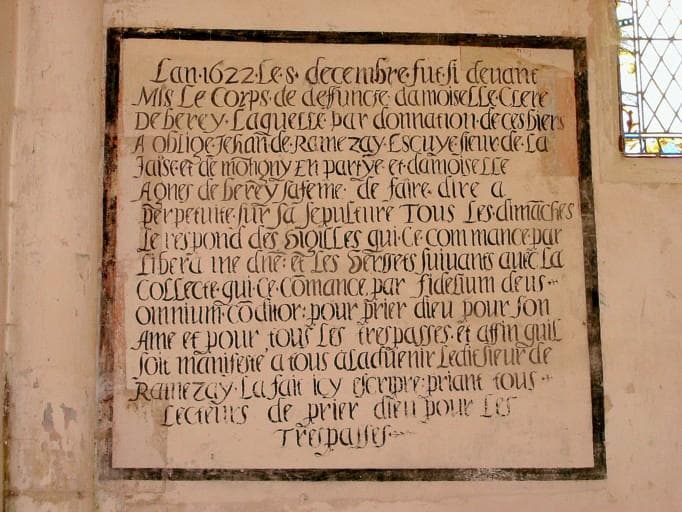 Lan·1622·Le·s· decembre·fut·si devant
Mis Le Corps·de deffuncte·damoiselle·Clere
De berey·Laquelle·par donnation·de ces biens
A oblige·Jehan·de·Ramezay·Escuye·sieur·de·La
et de motigny En partye·et·damoiselle
Agnes de berey·sa feme· de faire·dire a
perpetuite·sur sa sepulture Tous Les·dimaches
Le respond des Vigilles·qui·Ce·commance·par
Libera me dne· et Les Verssets suivants avec La
Collecte·qui·Ce·Comance·par fidelium deus·
omnium·coditor:pour prier dieu pour son
Ame et pour tous Les trespasses·et affin quil
soit manifeste a tous aladuenir Ledit sieur de
Ramezay·La fait icy escripre:priant tous·
Lecteurs de prier dieu pour Les
Trespasses·